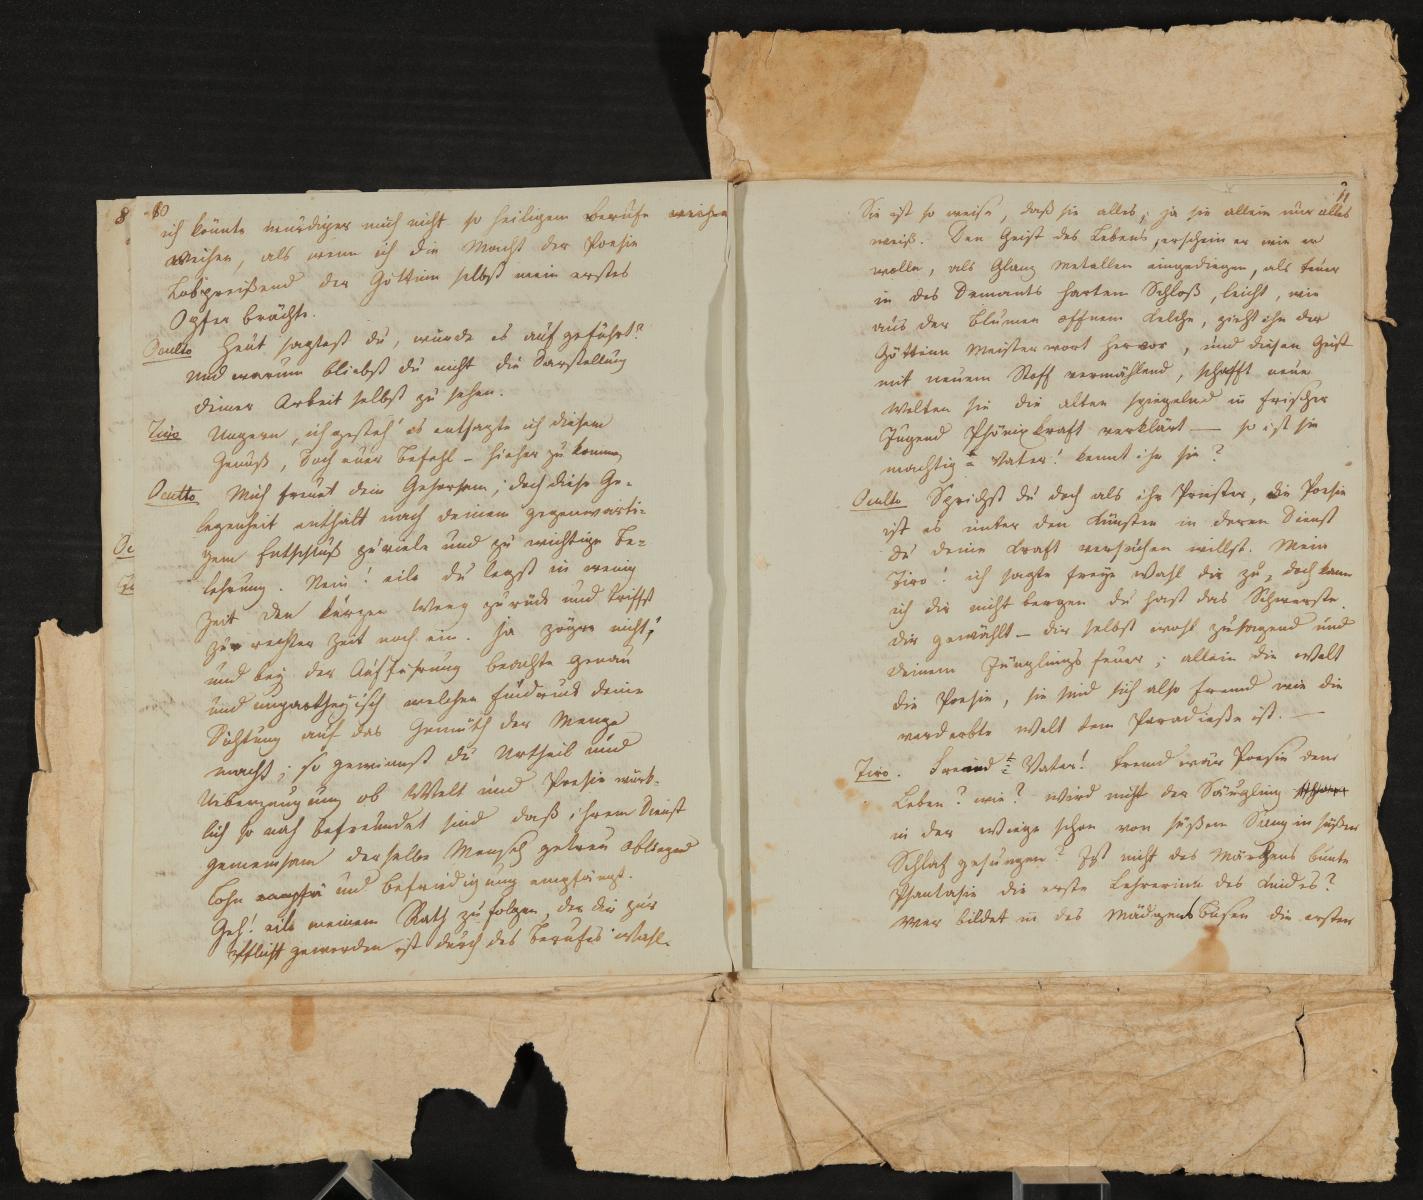 8 10
ich könnte würdiger mich nicht so heiligem Berufe weihen
weihen, als wenn ich die Macht der Poesie
Lobpreißend der Göttinn selbst mein erstes
Opfer brächte.
Oculto Heut sagtest du, wurde es aufgeführt?
und warum bliebst du nicht die Darstellung
deiner Arbeit selbst zu sehen.
Tiro Ungern, ich gesteh' es entsagte ich diesem
Genuß, doch euer Befehl – hieher zu kommen
Oculto Mich freuet dein Gehorsam; doch diese Ge-
legenheit enthält nach deinem gegenwärti-
gem Entschluß zu viele und zu wichtige Be-
lehrung. Nein! eile du legst in wenig
Zeit den kurzen Weeg zurück und triffst
zur rechter Zeit noch ein. Ja zögre nicht,
und bey der Aufführung beachte genau
und unpartheyisch welchen Eindruck deine
Dichtung auf das Gemüth der Menge
macht; so gewinnst du Urtheil und
Ueberzeugung ob Welt und Poesie würk-
lich so nah befreundet sind daß ihrem Dienst
gemeinsam derselbe Mensch getreu obliegend
Lohn und Befriedigung empfängt.
Geh! eile meinem Rath zu folgen, der dir zur
Pflicht geworden ist durch des Berufes Wahl.
Oc
Ti
11
Sie ist so weise, daß sie alles; ja sie allein nur alles
weiß. Den Geist des Lebens, erschein er wie er
wolle, als Glanz Metallen eingediegen, als Feuer
in des Demants harten Schloß, leicht, wie
aus der Blumen offnem Kelche, zieht ihn der
Göttinn Meisterwort hervor, und diesen Geist
mit neuem Stoff vermählend, schafft neue
Welten sie die alten spiegelnd in frischer
Jugend Phönixkraft verklärt — so ist sie
mächtig Vater! kennt ihr sie?
Oculto Sprichst du doch als ihr Priester, die Poesie
ist es unter den Künsten in deren Dienst
du deine Kraft versuchen willst. Mein
Tiro! ich sagte freye Wahl dir zu, doch kann
ich dir nicht bergen du hast das Schwerste
dir gewählt – dir selbst wohl zusagend und
deinem Jünglings feuer; allein die Welt
die Poesie, sie sind sich also fremd wie die
verderbte Welt dem Paradieße ist. —
Tiro. Fremd Vater! fremd wär Poesie dem
Leben? wie? wird nicht der Säugling
in der Wiege schon von süßem Sang in süßen
Schlaf gesungen? Ist nicht des Märchens bunte
Phantasie die erste Lehrerinn des Kindes?
Wer bildet in des Mädchens Busen die ersten